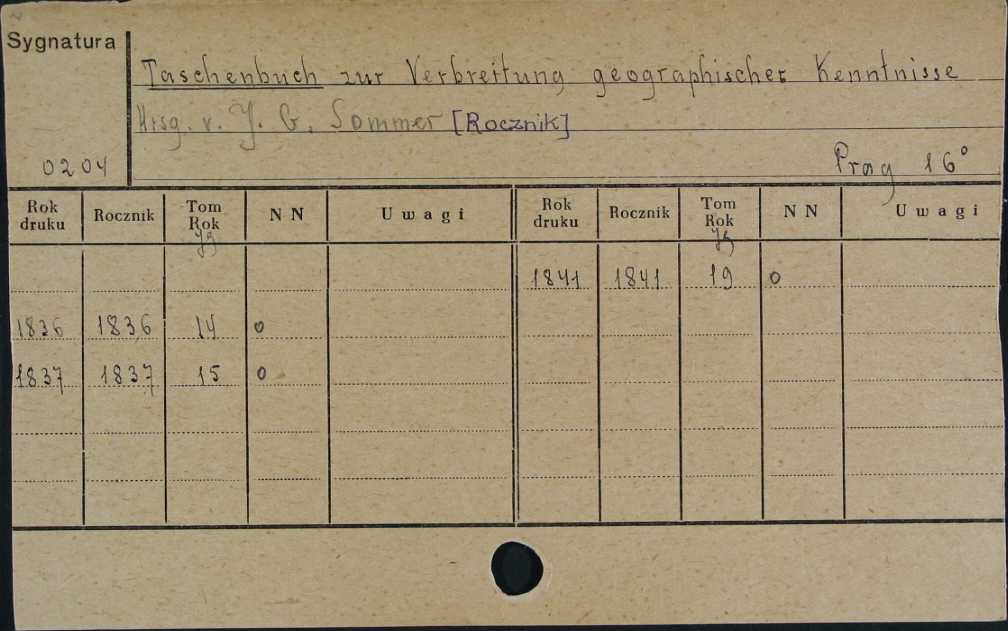 Sygnatura
Taschenbuch zur Verbreitung geographischer Kenntnisse
Hrsg. v. J. G. Sommer [Rocznik]
0204
Prag 16°
Rok druku Rocznik Tom Rok NN Uwagi Rok druku Rocznik Tom Rok NN Uwagi
Jg Jg
1841 1841 19 o
1836 1836 14 o
1837 1837 15 o